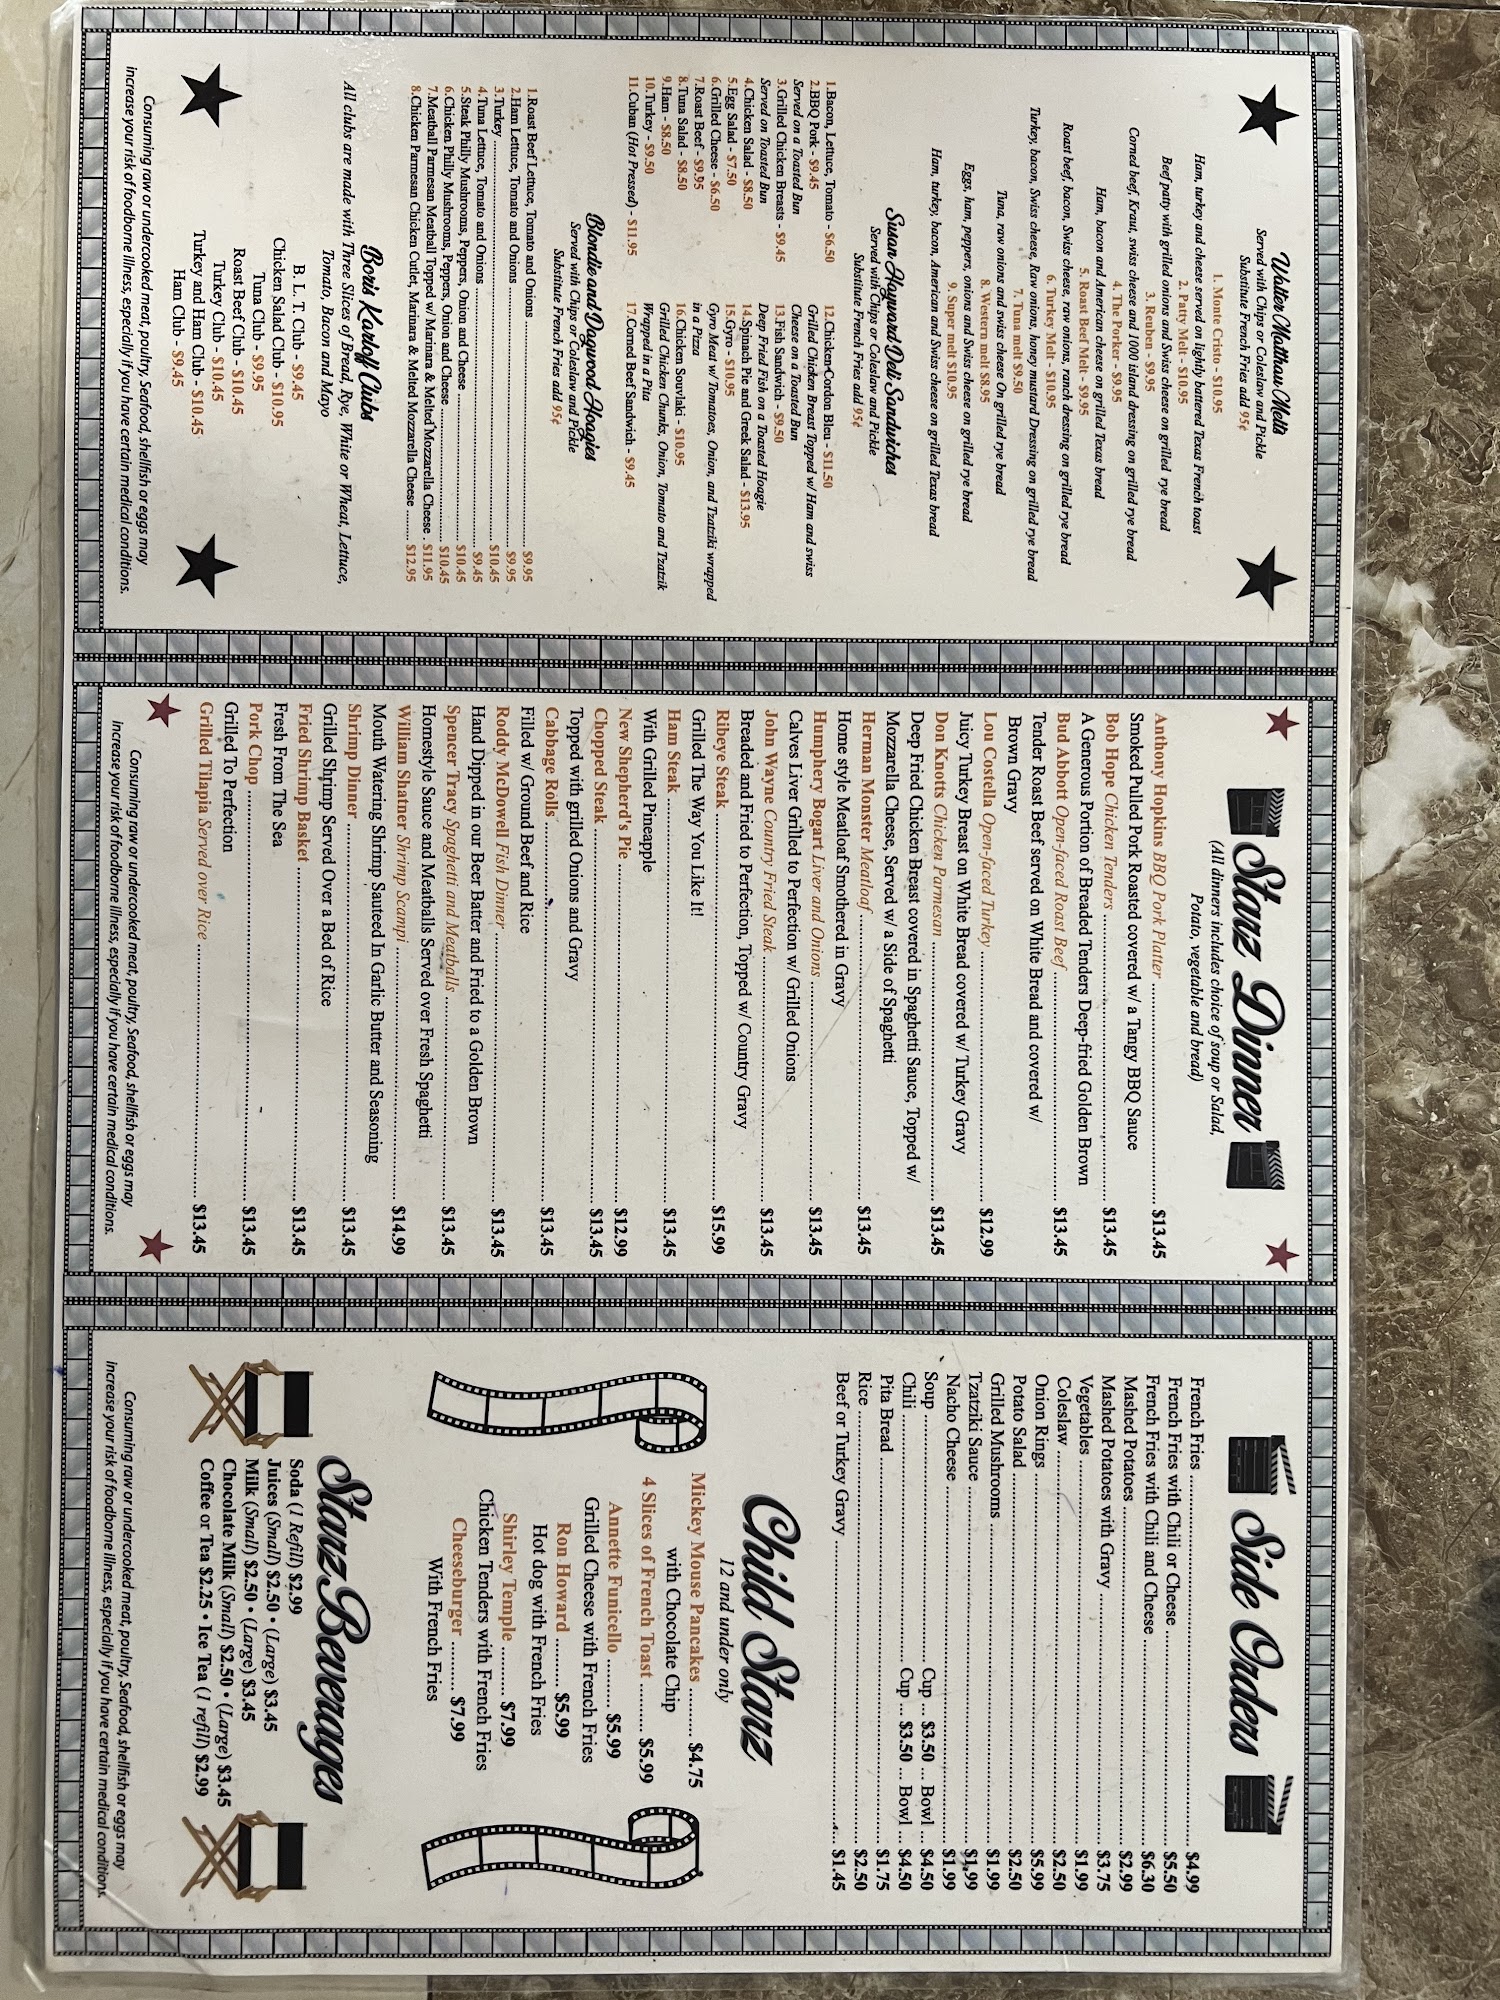 Walter Matthau Melts
Served with Chips or Coleslaw and Pickle
Substitute French Fries add 95¢
1. Monte Cristo - $10.95
Ham, turkey and cheese served on lightly battered Texas French toast
2. Patty Melt - $10.95
Beef patty with grilled onions and Swiss cheese on grilled rye bread
3. Reuben - $9.95
Corned beef, Kraut, swiss cheese and 1000 island dressing on grilled rye bread
4. The Porker - $9.95
Ham, bacon and American cheese on grilled Texas bread
5. Roast Beef Melt - $9.95
Roast beef, bacon, Swiss cheese, raw onions, ranch dressing on grilled rye bread
6. Turkey Melt - $10.95
Turkey, bacon, Swiss cheese, Raw onions, honey mustard Dressing on grilled rye bread
7. Tuna melt $9.50
Tuna, raw onions and swiss cheese On grilled rye bread
8. Western melt $8.95
Eggs, ham, peppers, onions and Swiss cheese on grilled rye bread
9. Super melt $10.95
Ham, turkey, bacon, American and Swiss cheese on grilled Texas bread
Susan Hayward Deli Sandwiches
Served with Chips or Coleslaw and Pickle
Substitute French Fries add 95¢
1.Bacon, Lettuce, Tomato - $6.50
2.BBQ Pork - $9.45
Served on a Toasted Bun
3.Grilled Chicken Breasts - $9.45
Served on Toasted Bun
4.Chicken Salad - $8.50
5.Egg Salad - $7.50
6.Grilled Cheese - $6.50
7.Roast Beef - $9.95
8.Tuna Salad - $8.50
9.Ham - $8.50
10.Turkey - $9.50
11.Cuban (Hot Pressed) - $11.95
12.Chicken Cordon Bleu - $11.50
Grilled Chicken Breast Topped w/ Ham and swiss
Cheese on a Toasted Bun
13.Fish Sandwich - $9.50
Deep Fried Fish on a Toasted Hoagie
14.Spinach Pie and Greek Salad - $13.95
15.Gyro - $10.95
Gyro Meat w/ Tomatoes, Onion, and Tzatziki wrapped
in a Pizza
16.Chicken Souvlaki - $10.95
Grilled Chicken Chunks, Onion, Tomato and Tzatzik
Wrapped in a Pita
17.Corned Beef Sandwich - $9.45
Blondie and Dagwood Hoagies
Served with Chips or Coleslaw and Pickle
Substitute French Fries add 95¢
1.Roast Beef Lettuce, Tomato and Onions ........ $9.95
2.Ham Lettuce, Tomato and Onions ........ $9.95
3.Turkey ........ $10.45
4.Tuna Lettuce, Tomato and Onions ........ $9.45
5.Steak Philly Mushrooms, Peppers, Onion and Cheese ........ $10.45
6.Chicken Philly Mushrooms, Peppers, Onion and Cheese ........ $10.45
7.Meatball Parmesan Meatball Topped w/ Marinara & Melted Mozzarella Cheese . $11.95
8.Chicken Parmesan Chicken Cutlet, Marinara & Melted Mozzarella Cheese ........ $12.95
Boris Karloff Clubs
All clubs are made with Three Slices of Bread, Rye, White or Wheat, Lettuce,
Tomato, Bacon and Mayo
B. L. T. Club - $9.45
Chicken Salad Club - $10.95
Tuna Club - $9.95
Roast Beef Club - $10.45
Turkey Club - $10.45
Turkey and Ham Club - $10.45
Ham Club - $9.45
Consuming raw or undercooked meat, poultry, Seafood, shellfish or eggs may
increase your risk of foodborne illness, especially if you have certain medical conditions.
Starz Dinner
(All dinners includes choice of soup or Salad,
Potato, vegetable and bread)
Anthony Hopkins BBQ Pork Platter ........ $13.45
Smoked Pulled Pork Roasted covered w/ a Tangy BBQ Sauce
Bob Hope Chicken Tenders ........ $13.45
A Generous Portion of Breaded Tenders Deep-fried Golden Brown
Bud Abbott Open-faced Roast Beef ........ $13.45
Tender Roast Beef served on White Bread and covered w/
Brown Gravy
Lou Costella Open-faced Turkey ........ $12.99
Juicy Turkey Breast on White Bread covered w/ Turkey Gravy
Don Knotts Chicken Parmesan ........ $13.45
Deep Fried Chicken Breast covered in Spaghetti Sauce, Topped w/
Mozzarella Cheese, Served w/ a Side of Spaghetti
Herman Monster Meatloaf ........ $13.45
Home style Meatloaf Smothered in Gravy
Humphery Bogart Liver and Onions ........ $13.45
Calves Liver Grilled to Perfection w/ Grilled Onions
John Wayne Country Fried Steak ........ $13.45
Breaded and Fried to Perfection, Topped w/ Country Gravy
Ribeye Steak ........ $15.99
Grilled The Way You Like It!
Ham Steak ........ $13.45
With Grilled Pineapple
New Shepherd's Pie ........ $12.99
Chopped Steak ........ $13.45
Topped with grilled Onions and Gravy
Cabbage Rolls ........ $13.45
Filled w/ Ground Beef and Rice
Roddy McDowell Fish Dinner ........ $13.45
Hand Dipped in our Beer Batter and Fried to a Golden Brown
Spencer Tracy Spaghetti and Meatballs ........ $13.45
Homestyle Sauce and Meatballs Served over Fresh Spaghetti
William Shatner Shrimp Scampi ........ $14.99
Mouth Watering Shrimp Sauteed In Garlic Butter and Seasoning
Shrimp Dinner ........ $13.45
Grilled Shrimp Served Over a Bed of Rice
Fried Shrimp Basket ........ $13.45
Fresh From The Sea
Pork Chop ........ $13.45
Grilled To Perfection
Grilled Tilapia Served over Rice ........ $13.45
Consuming raw or undercooked meat, poultry, Seafood, shellfish or eggs may
increase your risk of foodborne illness, especially if you have certain medical conditions.
Side Orders
French Fries ........ $4.99
French Fries with Chili or Cheese ........ $5.50
French Fries with Chili and Cheese ........ $6.30
Mashed Potatoes ........ $2.99
Mashed Potatoes with Gravy ........ $3.75
Vegetables ........ $1.99
Coleslaw ........ $2.50
Onion Rings ........ $5.99
Potato Salad ........ $2.50
Grilled Mushrooms ........ $1.99
Tzatziki Sauce ........ $1.99
Nacho Cheese ........ $1.99
Soup ........ Cup ... $3.50 ... Bowl ... $4.50
Chili ........ Cup ... $3.50 ... Bowl ... $4.50
Pita Bread ........ $1.75
Rice ........ $2.50
Beef or Turkey Gravy ........ $1.45
Child Starz
12 and under only
Mickey Mouse Pancakes ........ $4.75
with Chocolate Chip
4 Slices of French Toast ........ $5.99
Annette Funicello ........ $5.99
Grilled Cheese with French Fries
Ron Howard ........ $5.99
Hot dog with French Fries
Shirley Temple ........ $7.99
Chicken Tenders with French Fries
Cheeseburger ........ $7.99
With French Fries
Starz Beverages
Soda (1 Refill) $2.99
Juices (Small) $2.50 • (Large) $3.45
Milk (Small) $2.50 • (Large) $3.45
Chocolate Milk (Small) $2.50 • (Large) $3.45
Coffee or Tea $2.25 • Ice Tea (1 refill) $2.99
Consuming raw or undercooked meat, poultry, Seafood, shellfish or eggs may
increase your risk of foodborne illness, especially if you have certain medical conditions.